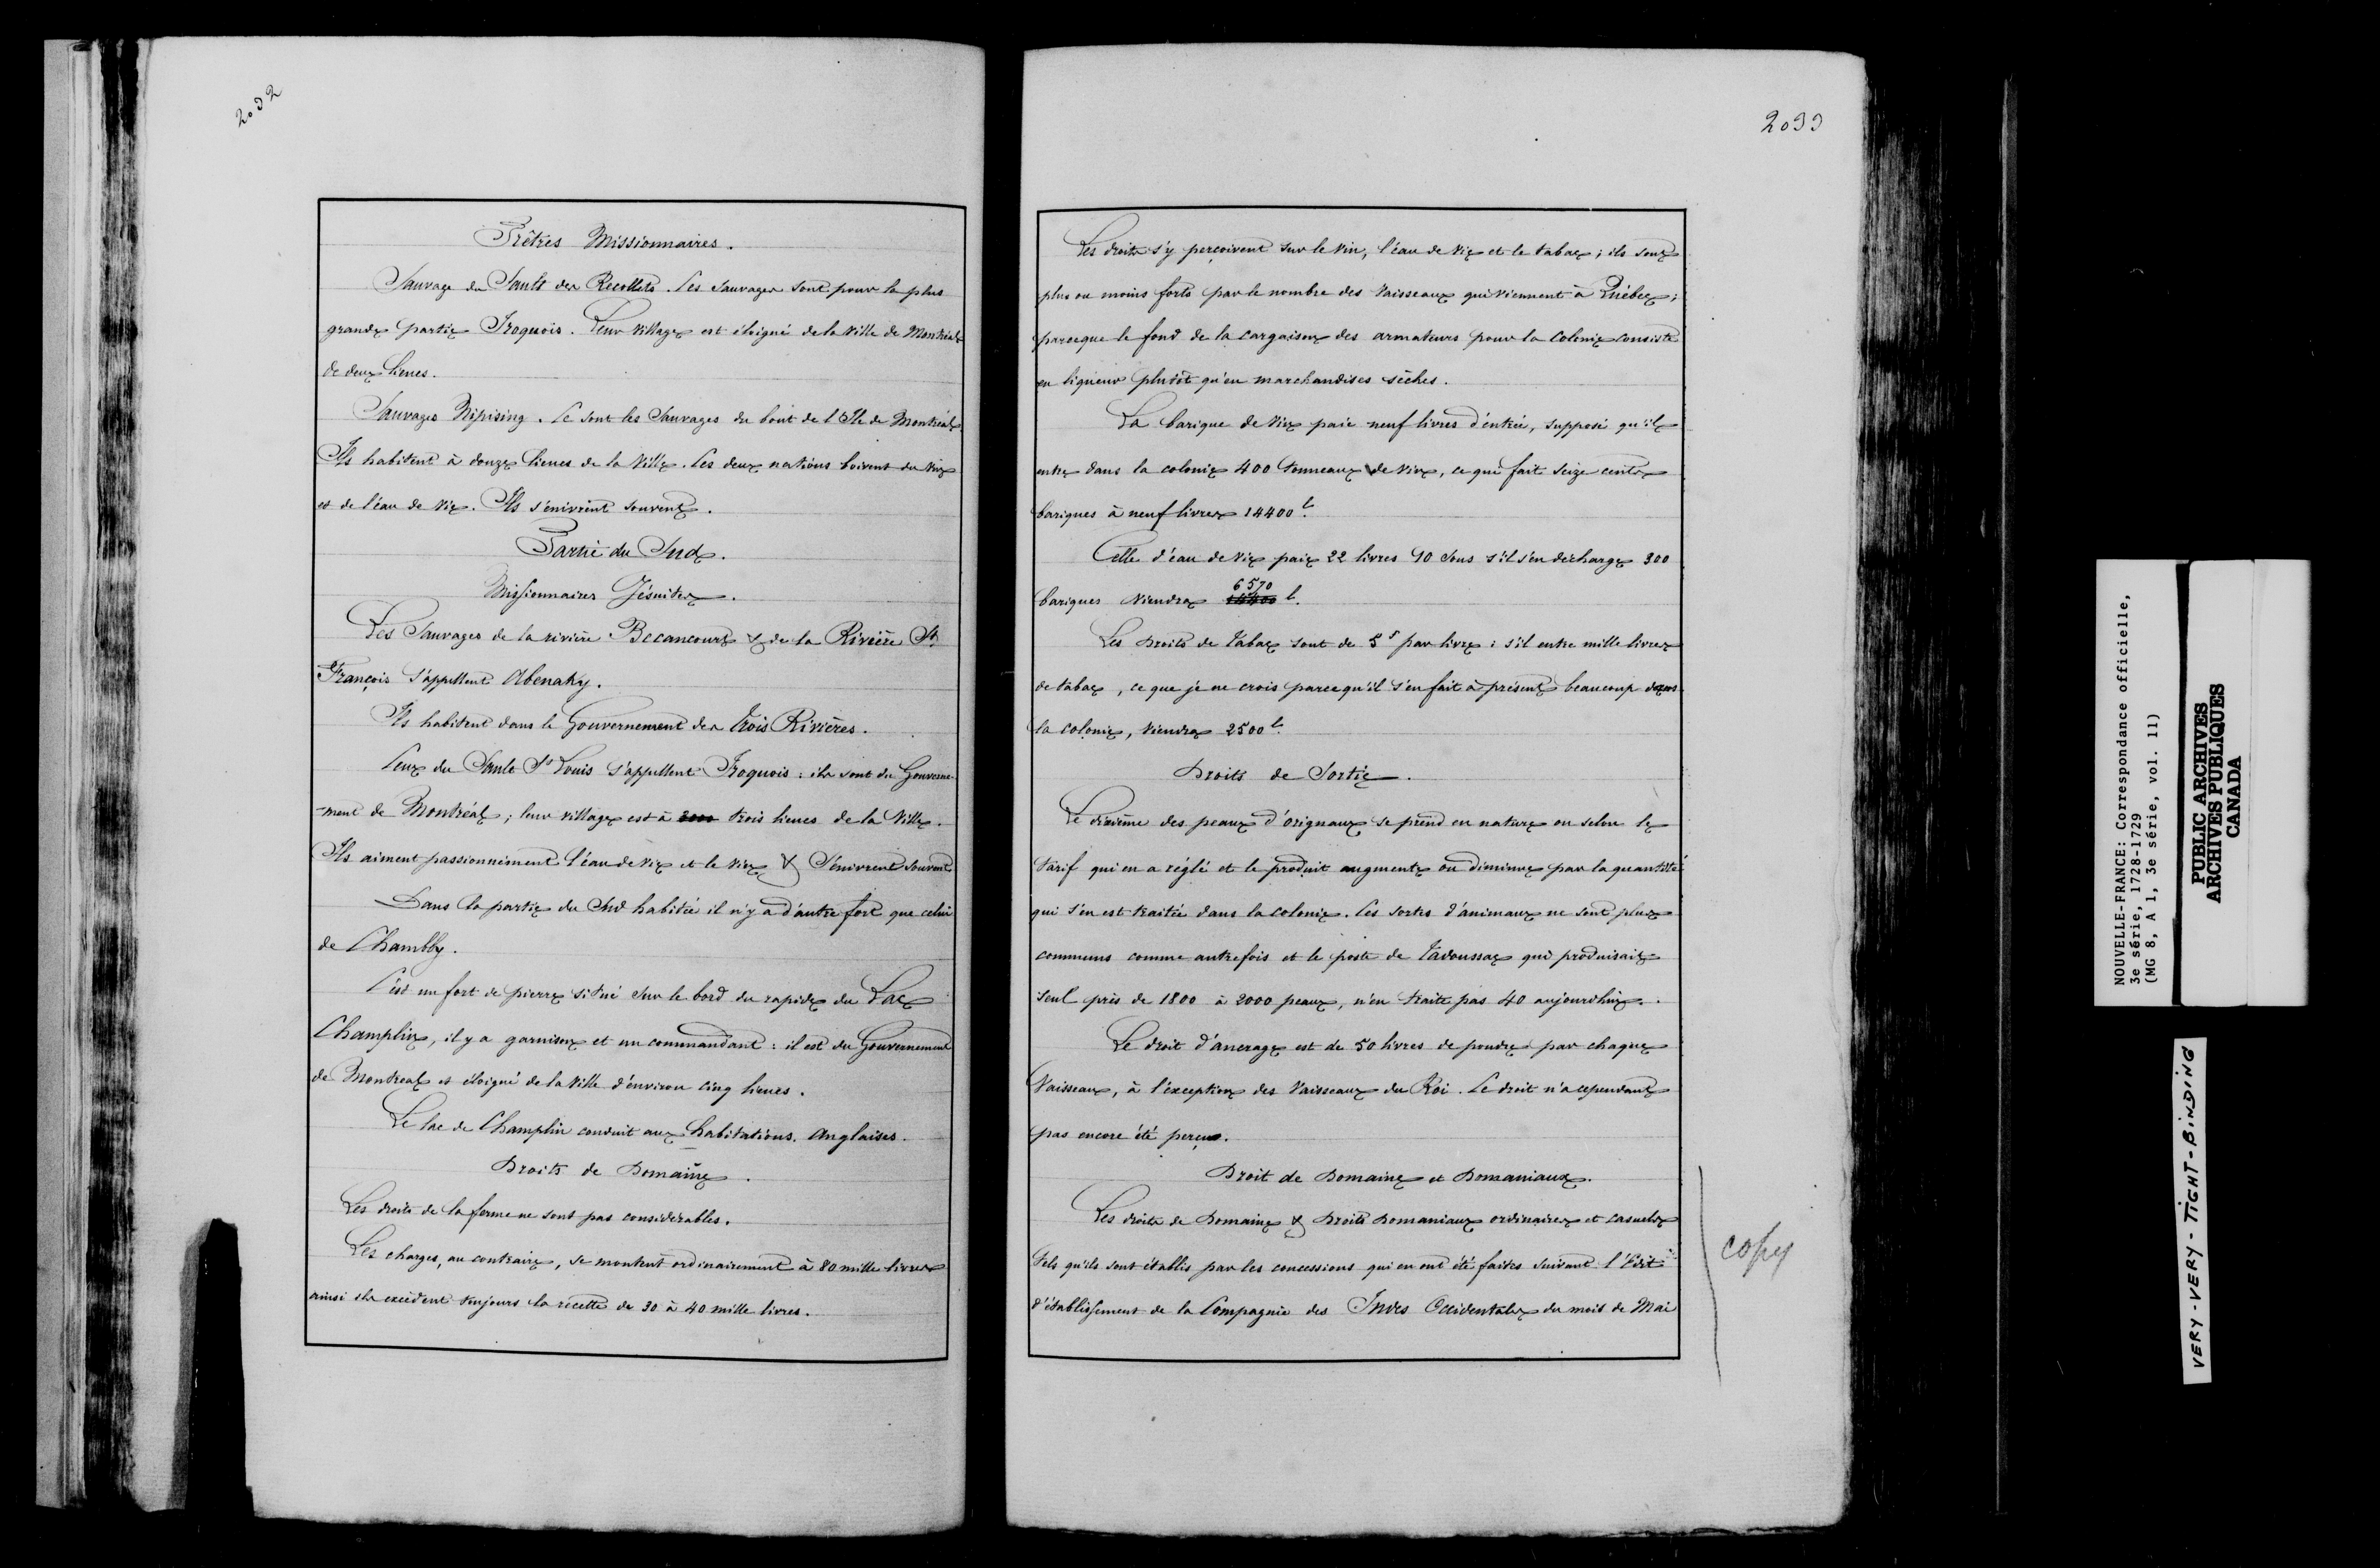 2032
Prêtres Missionnaires.
Sauvage du Sault des Recollets. Ces Sauvages sont pour la plus
grande partie Iroquois. Leur village est éloigné de la ville de Montréal
de deux lieues.
Sauvages Nipising. Ce sont les Sauvages du bout de l'Ile de Montréal.
Ils habitent à douze lieues de la Ville. Ces deux nations boivent du vin
et de l'eau de vie. Ils s'enivrent souvent.
Partie du Sud.
Missionnaires Jésuites.
Les Sauvages de la rivière Becancourt & de la Rivière St
François s'appellent Abenaky.
Ils habitent dans le Gouvernement des Trois Rivières.
Ceux du Sault St Louis s'appellent Iroquois : ils sont du Gouverne-
-ment de Montréal ; leur village est à trois lieues de la Ville.
Ils aiment passionnément l'eau de vie et le vin & s'énivrent souvent
Dans la partie du Sud habitée il n'y a d'autre fort que celui
de Chambly.
C'est un fort de pierre situé sur le bord du rapide du Lac
Champlin, il y a garnison et un commandant : il est du Gouvernement
de Montreal et éloigné de la ville d'environ cinq lieues.
Le lac de Champlin conduit aux habitations Anglaises.
Droits de Domaine.
Les droits de la ferme ne sont pas considérables.
Les charges, au contraire, se montent ordinairement à 80 mille livres
ainsi ils excèdent toujours la recette de 30 à 40 mille livres.
2033
Les droits s'y perçoivent sur le vin, l'eau de vie et le tabac ; ils sont
plus ou moins forts par le nombre des Vaisseaux qui viennent à Québec ;
parceque le fond de la cargaison des armateurs pour la colonie consiste
en liqueur plutôt qu'en marchandises sèches.
La barique de vin paie neuf livres d'entrée, supposé qu'il
entre dans la colonie 400 tonneaux de vin, ce qui fait seize cents
bariques à neuf livres 14400 l.
Celle d'eau de vie paie 22 livres 10 sous s'il s'en décharge 300
bariques viendra 6570 l.
Les droits de tabac sont de 5 s par livre : s'il entre mille livres
de tabac, ce que je ne crois parcequ'il s'en fait à présent beaucoup dans
la colonie, viendra 2500 l.
Droits de Sortie.
Le dixième des peaux d'orignaux se prend en nature ou selon le
tarif qui en a réglé et le produit augmente ou diminue par la quantité
qui s'en est traitée dans la colonie. Ces sortes d'animaux ne sont plus
communs comme autrefois et le poste de Tadoussac qui produisait
seul près de 1800 à 2000 peaux, n'en traite pas 40 aujourdhui.
Le droit d'ancrage est de 50 livres de poudre par chaque
Vaisseau, à l'exception des Vaisseaux du Roi. Ce droit n'a cependant
pas encore été perçu.
Droit de Domaine et Domaniaux.
Les droits de Domaine & Droits Domaniaux ordinaires et casuels
tels qu'ils sont établis par les concessions qui en ont été faites suivant l'Edit
d'établissement de la Compagnie des Indes Occidentales du mois de Mai
copy
NOUVELLE-FRANCE: Correspondance officielle,
3e série, 1728-1729
(MG 8, A 1, 3e série, vol. 11)
PUBLIC ARCHIVES
ARCHIVES PUBLIQUES
CANADA
VERY-VERY-TIGHT-BINDING